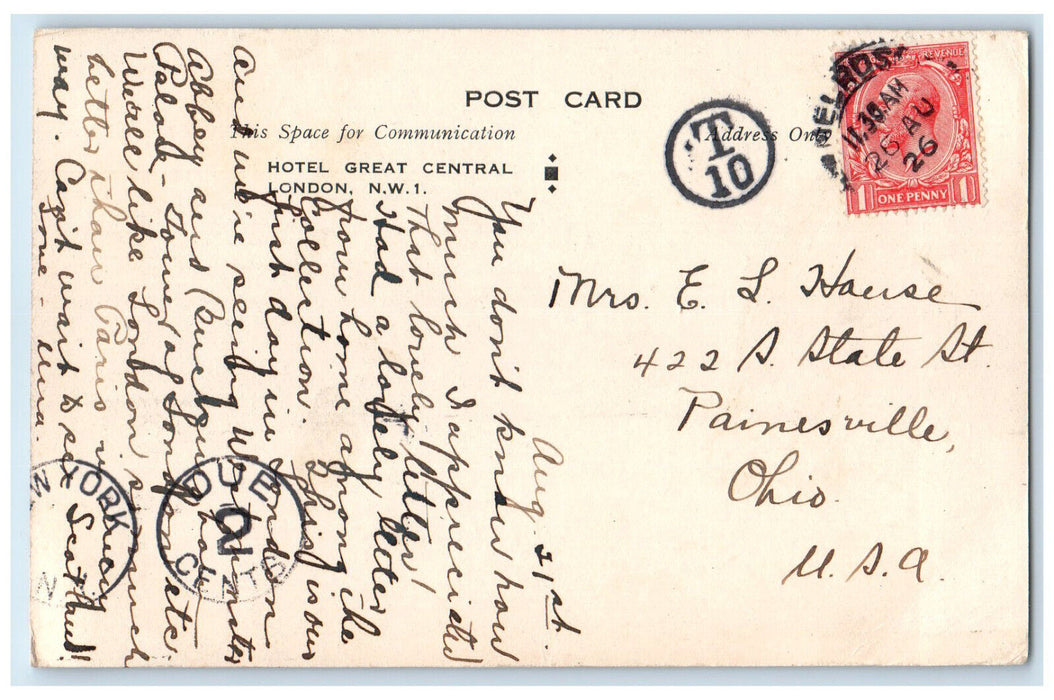 POST CARD
This Space for Communication
Address Only
HOTEL GREAT CENTRAL
LONDON, N.W.1.
T
10
ELROS
11.30 AM
26 AU
26
REVENUE
1 ONE PENNY 1
Mrs. E. L. House
422 S. State St.
Painesville,
Ohio.
U. S. A.
Aug. 21st.
You don't know how
much I appreciate
that lovely letter!
Had a lovely letter
from home among the
collection. This is our
first day in London
and we're seeing Westminster
Abbey and Buckingham
Palace - Tower of London etc.
We all like London so much
better than Paris
way. Can't wait to see Scotland!
Love -
DUE
2
CENTS
NEW YORK
N